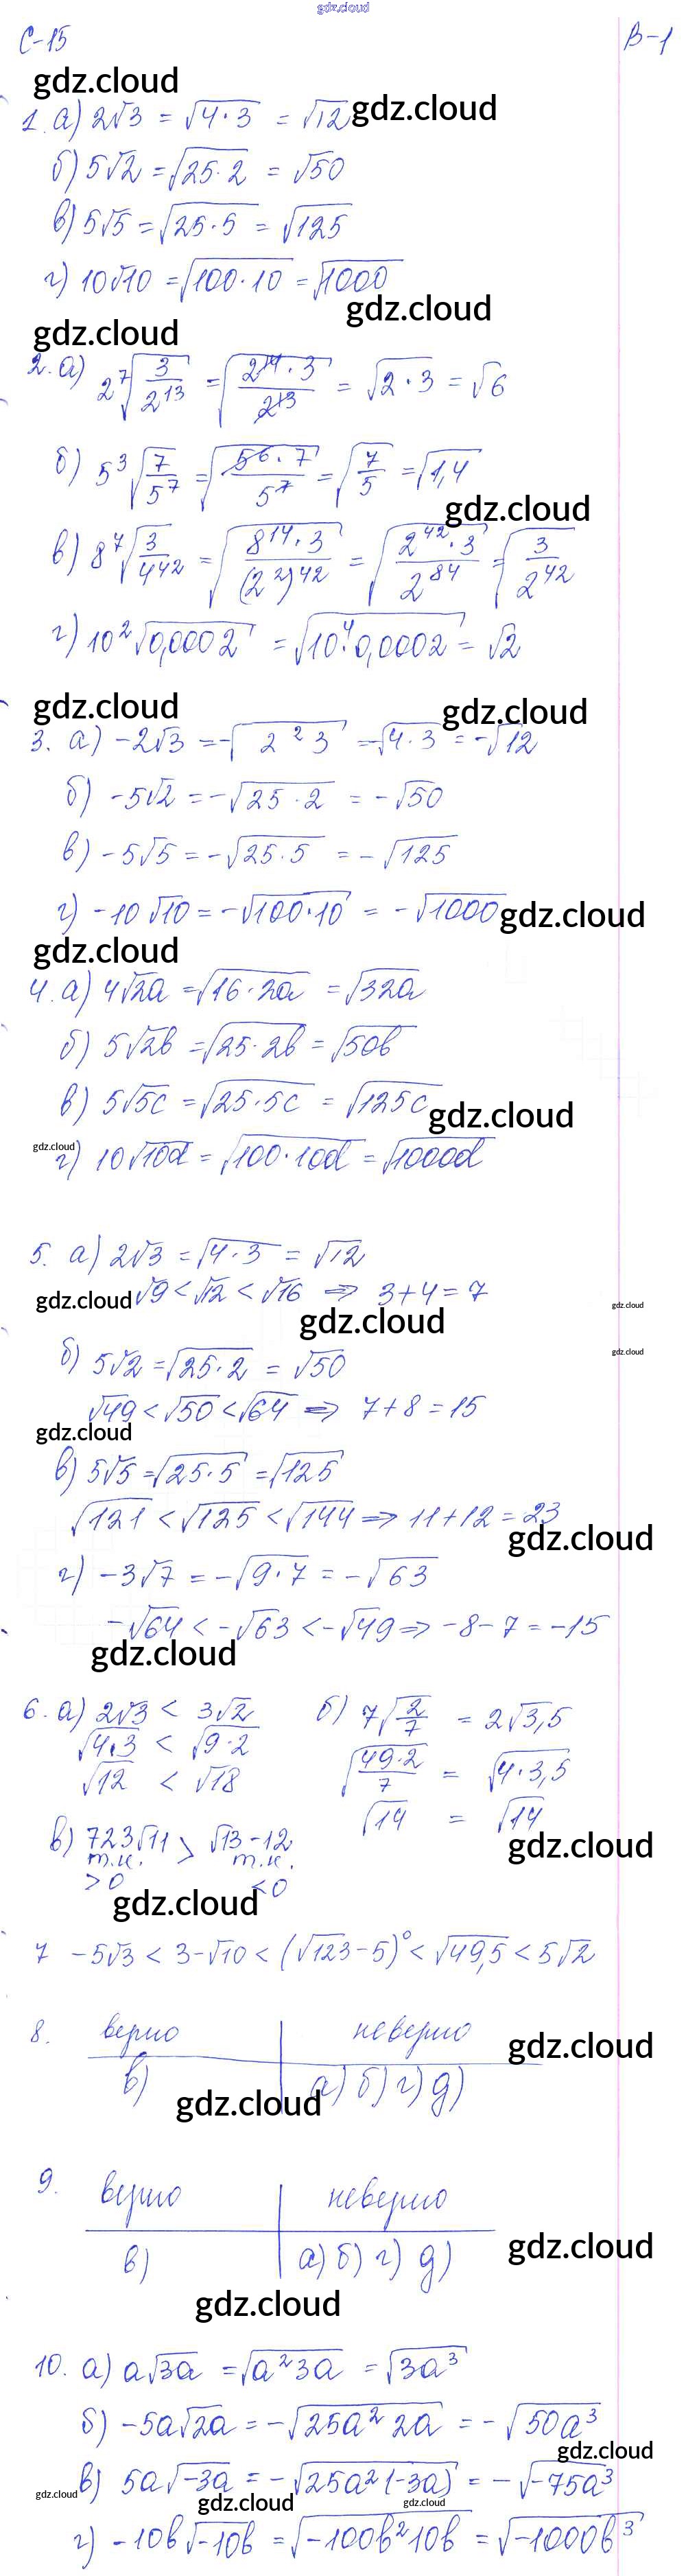 gdz.cloud
С-15 В-1
gdz.cloud
1. а) 2√3 = √(4·3) = √12 gdz.cloud
б) 5√2 = √(25·2) = √50
в) 5√5 = √(25·5) = √125
г) 10√10 = √(100·10) = √1000
gdz.cloud
gdz.cloud
2. а) 2⁷√(3/2¹³) = √(2¹⁴·3/2¹³) = √(2·3) = √6
б) 5³√(7/5⁷) = √(5⁶·7/5⁷) = √(7/5) = √1,4
gdz.cloud
в) 8⁷√(3/4⁴²) = √(8¹⁴·3/(2²)⁴²) = √(2⁴²·3/2⁸⁴) = √(3/2⁴²)
г) 10²√0,0002 = √(10⁴·0,0002) = √2
gdz.cloud gdz.cloud
3. а) -2√3 = -√(2² 3) = -√(4·3) = -√12
б) -5√2 = -√(25·2) = -√50
в) -5√5 = -√(25·5) = -√125
г) -10√10 = -√(100·10) = -√1000 gdz.cloud
gdz.cloud
4. а) 4√2a = √(16·2a) = √32a
б) 5√2b = √(25·2b) = √50b
в) 5√5c = √(25·5c) = √125c
gdz.cloud
gdz.cloud
г) 10√10d = √(100·10d) = √1000d
5. а) 2√3 = √(4·3) = √12
gdz.cloud √9 < √12 < √16 ⇒ 3+4=7
gdz.cloud
gdz.cloud
gdz.cloud
б) 5√2 = √(25·2) = √50
√49 < √50 < √64 ⇒ 7+8=15
gdz.cloud
в) 5√5 = √(25·5) = √125
√121 < √125 < √144 ⇒ 11+12=23
gdz.cloud
г) -3√7 = -√(9·7) = -√63
-√64 < -√63 < -√49 ⇒ -8-7=-15
gdz.cloud
6. а) 2√3 < 3√2 б) 7√(2/7) = 2√3,5
√(4·3) < √(9·2) √(49·2/7) = √(4·3,5)
√12 < √18 √14 = √14
gdz.cloud
в) 723√11 > √13-12
т.к. т.к.
>0 <0
gdz.cloud
7 -5√3 < 3-√10 < (√123-5)⁰ < √49,5 < 5√2
8. верно неверно
gdz.cloud
в) а) б) г) д)
gdz.cloud
9. верно неверно
в) а) б) г) д)
gdz.cloud
gdz.cloud
10. а) a√3a = √(a²3a) = √3a³
б) -5a√2a = -√(25a² 2a) = -√50a³
gdz.cloud
gdz.cloud
в) 5a√-3a = -√(25a²(-3a)) = -√-75a³
gdz.cloud gdz.cloud
г) -10b√-10b = √(-100b²10b) = √-1000b³